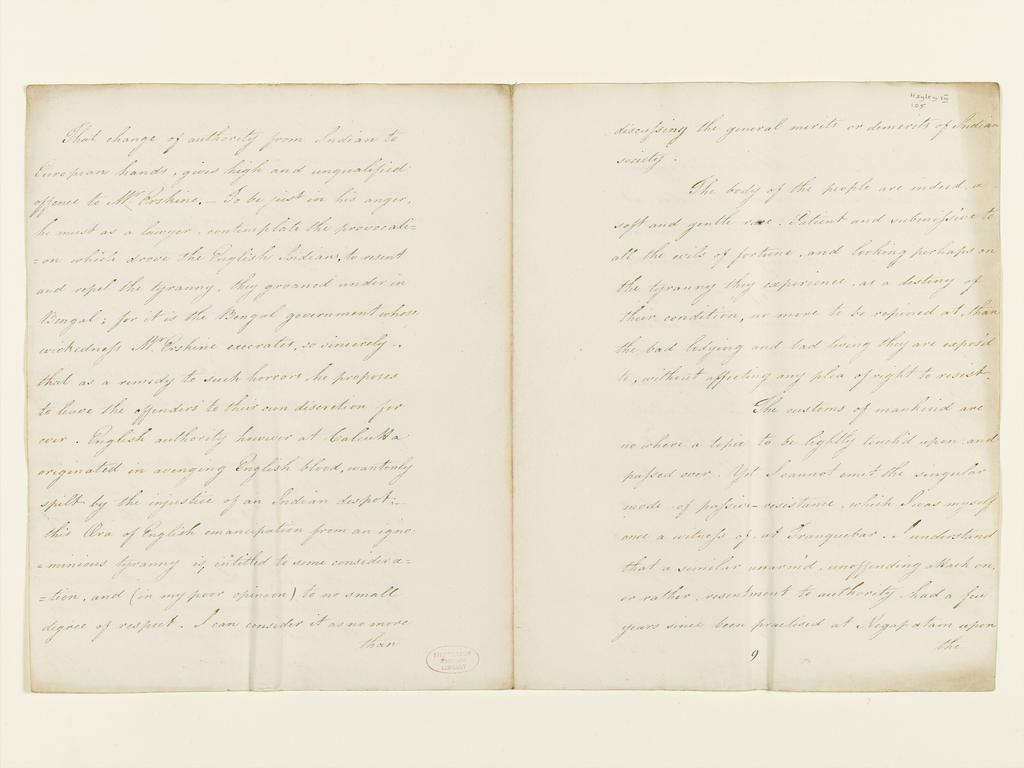 That change of authority from Indian to
European hands, gives high and unqualified
offence to Mr. Erskine. — To be just in his anger,
he must as a lawyer, contemplate the provocati=
=on which drove the English Indians, to resent
and repel the tyranny, they groaned under in
Bengal; for it is the Bengal government whose
wickedness Mr. Erskine execrates, so sincerely,
that as a remedy to such horrors, he proposes
to leave the offenders to their own discretion for
ever. English authority however at Calcutta
originated in avenging English blood, wantonly
spilt by the injustice of an Indian despot:—
this Æra of English emancipation from an igno=
=minious tyranny is, intitled to some considera=
=tion, and (in my poor opinion) to no small
degree of respect. I can consider it as no more
than
LIBRARY
Hayley
105
discussing the general merits or demerits of Indian
society.
The body of the people are indeed, a
soft and gentle race. Patient and submissive to
all the evils of fortune, and looking perhaps on
the tyranny they experience, as a destiny of
their condition, no more to be repined at, than
the bad lodging and bad living they are expos'd
to, without affecting any plea of right to resist.
The customs of mankind are
no where a topic to be lightly touch'd upon and
passed over. Yet I cannot omit the singular
mode of passive-resistance, which I was myself
once a witness of, at Tranquebar. I understand
that a similar unarm'd, unoffending attack on,
or rather, resentment to authority, had a few
years since been practised at Negapatam upon
the
9